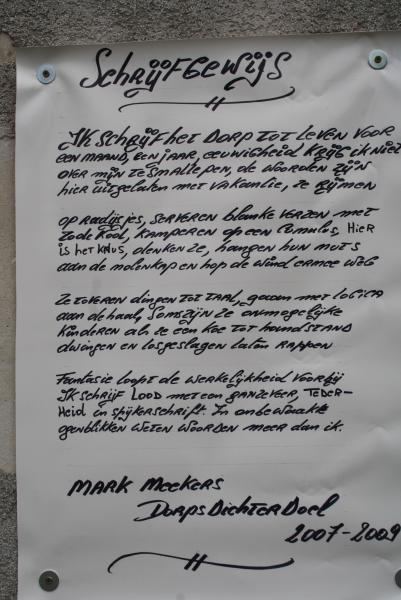 Schrijfgewijs
Ik schrijf het dorp tot leven voor
een maand, een jaar, eeuwigheid krijg ik niet
over mijn te smalle pen, de woorden zijn
hier uitgelaten met vakantie, ze rijmen
op radijsjes, serveren blanke verzen met
rode kool, kamperen op een cumulus, hier
is het knus, denken ze, hangen hun muts
aan de molenkap en hop de wind ermee weg
Ze toveren dingen tot taal, gaan met logica
aan de haal, soms zijn ze onmogelijke
kinderen als ze een koe tot handstand
dwingen en losgeslagen laten rappen
Fantasie loopt de werkelijkheid voorbij
Ik schrijf lood met een ganzeveer, teder-
heid in spijkerschrift. In onbewaakte
ogenblikken weten woorden meer dan ik.
Mark Meekers
DorpsDichterDoel
2007-2009